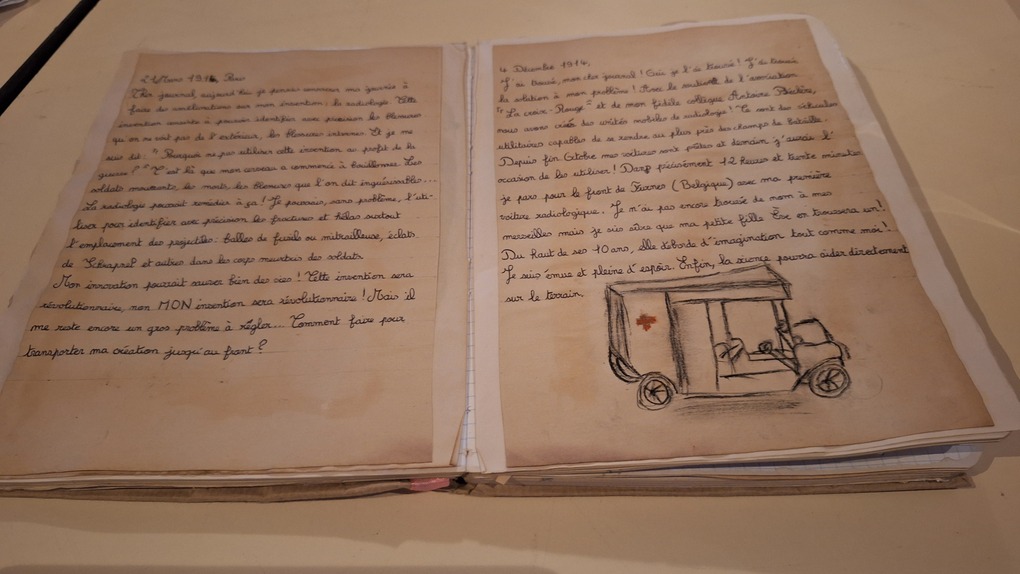 Mars 191 Paris
Cher journal, aujourd'hui je pense consacrer ma journée à
faire des améliorations sur mon invention : la radiologie. Cette
invention consiste à pouvoir identifier avec précision les blessures
qu'on ne voit pas de l'extérieur, les blessures internes. Et je me
suis dit : " Pourquoi ne pas utiliser cette invention au profit de la
guerre ? " C'est là que mon cerveau a commencé à bouillonner. Les
soldats mourants, les morts, les blessures que l'on dit inguérissables...
La radiologie pourrait remédier à ça ! Je pourrais, sans problème, l'uti-
liser pour identifier avec précision les fractures et hélas surtout
l'emplacement des projectiles : balles de fusils ou mitrailleuse, éclats
de Schrapnel et autres dans les corps meurtris des soldats.
Mon innovation pourrait sauver bien des vies ! Cette invention sera
révolutionnaire, non MON invention sera révolutionnaire ! Mais il
me reste encore un gros problème à régler... Comment faire pour
transporter ma création jusqu'au front ?
Décembre 1914,
J'ai trouvé, mon cher journal ! Oui je l'ai trouvé ! J'ai trouvé
la solution à mon problème ! Avec le soutien de l'association
" La croix-Rouge " et de mon fidèle collègue Antoine Béclère,
nous avons créé des unités mobiles de radiologie ! Ce sont des véhicules
utilitaires capables de se rendre au plus près des champs de bataille.
Depuis fin Octobre mes voitures sont prêtes et demain j'aurai l'
occasion de les utiliser ! Dans précisément 12 heures et trente minutes
je pars pour le front de Furnes (Belgique) avec ma première
voiture radiologique. Je n'ai pas encore trouvée de nom à mes
merveilles mais je suis sûre que ma petite fille Ève en trouvera un !
Du haut de ses 10 ans, elle déborde d'imagination tout comme moi !
Je suis émue et pleine d'espoir. Enfin, la science pourra aider directement
sur le terrain.